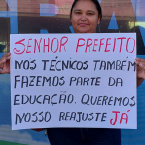 SENHOR PREFEITO
NOS TÉCNICOS TAMBÉM
FAZEMOS PARTE DA
EDUCAÇÃO. QUEREMOS
NOSSO REAJUSTE JÁ